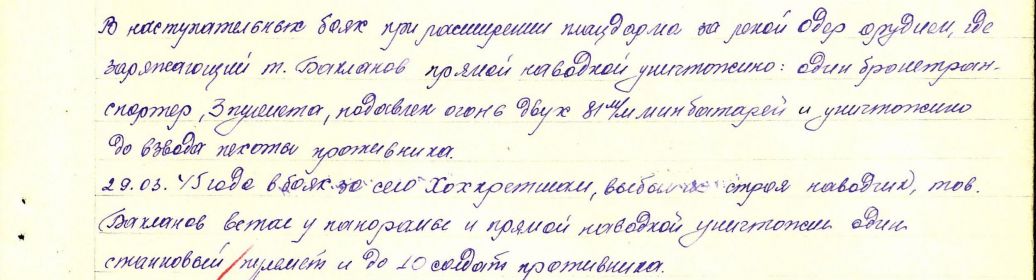 В наступательных боях при расширении плацдарма за рекой Одер орудием, где
заряжающий т. Бакланов прямой наводкой уничтожено: один бронетран-
спортер, 3 пулемета, подавлен огонь двух 81 м/м минбатарей и уничтожено
до взвода пехоты противника.
29.03.45 года в боях за село Хоккретшам, выбыл из строя наводчик, тов.
Бакланов встал у панорамы и прямой наводкой уничтожил один
станковый пулемет и до 10 солдат противника.